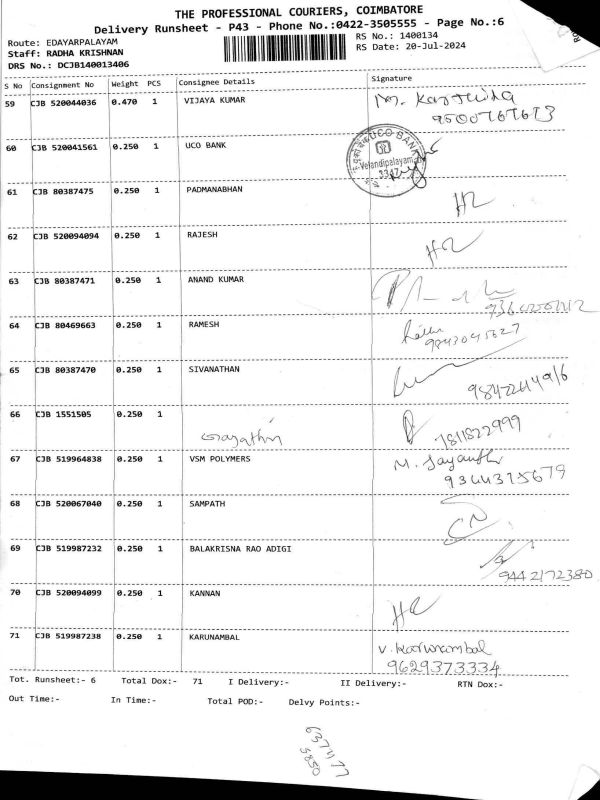 THE PROFESSIONAL COURIERS, COIMBATORE
Delivery Runsheet - P43 - Phone No.:0422-3505555 - Page No.:6
Route: EDAYARPALAYAM
RS No.: 1400134
Staff: RADHA KRISHNAN
RS Date: 20-Jul-2024
DRS No.: DCJB140013406
S No Consignment No Weight PCS Consignee Details Signature
59 CJB 520044036 0.470 1 VIJAYA KUMAR
60 CJB 520041561 0.250 1 UCO BANK
UCO BANK
Velandipalayam
3347
61 CJB 80387475 0.250 1 PADMANABHAN
62 CJB 520094094 0.250 1 RAJESH
63 CJB 80387471 0.250 1 ANAND KUMAR
64 CJB 80469663 0.250 1 RAMESH
9842045627
65 CJB 80387470 0.250 1 SIVANATHAN
66 CJB 1551505 0.250 1
7811822999
67 CJB 519964838 0.250 1 VSM POLYMERS M. Jayanthi
9344375679
68 CJB 520067040 0.250 1 SAMPATH
69 CJB 519987232 0.250 1 BALAKRISNA RAO ADIGI
9442172380
70 CJB 520094099 0.250 1 KANNAN
71 CJB 519987238 0.250 1 KARUNAMBAL
v. Karunambal
9629373334
Tot. Runsheet:- 6 Total Dox:- 71 I Delivery:- II Delivery:- RTN Dox:-
Out Time:- In Time:- Total POD:- Delvy Points:-
637477
5850